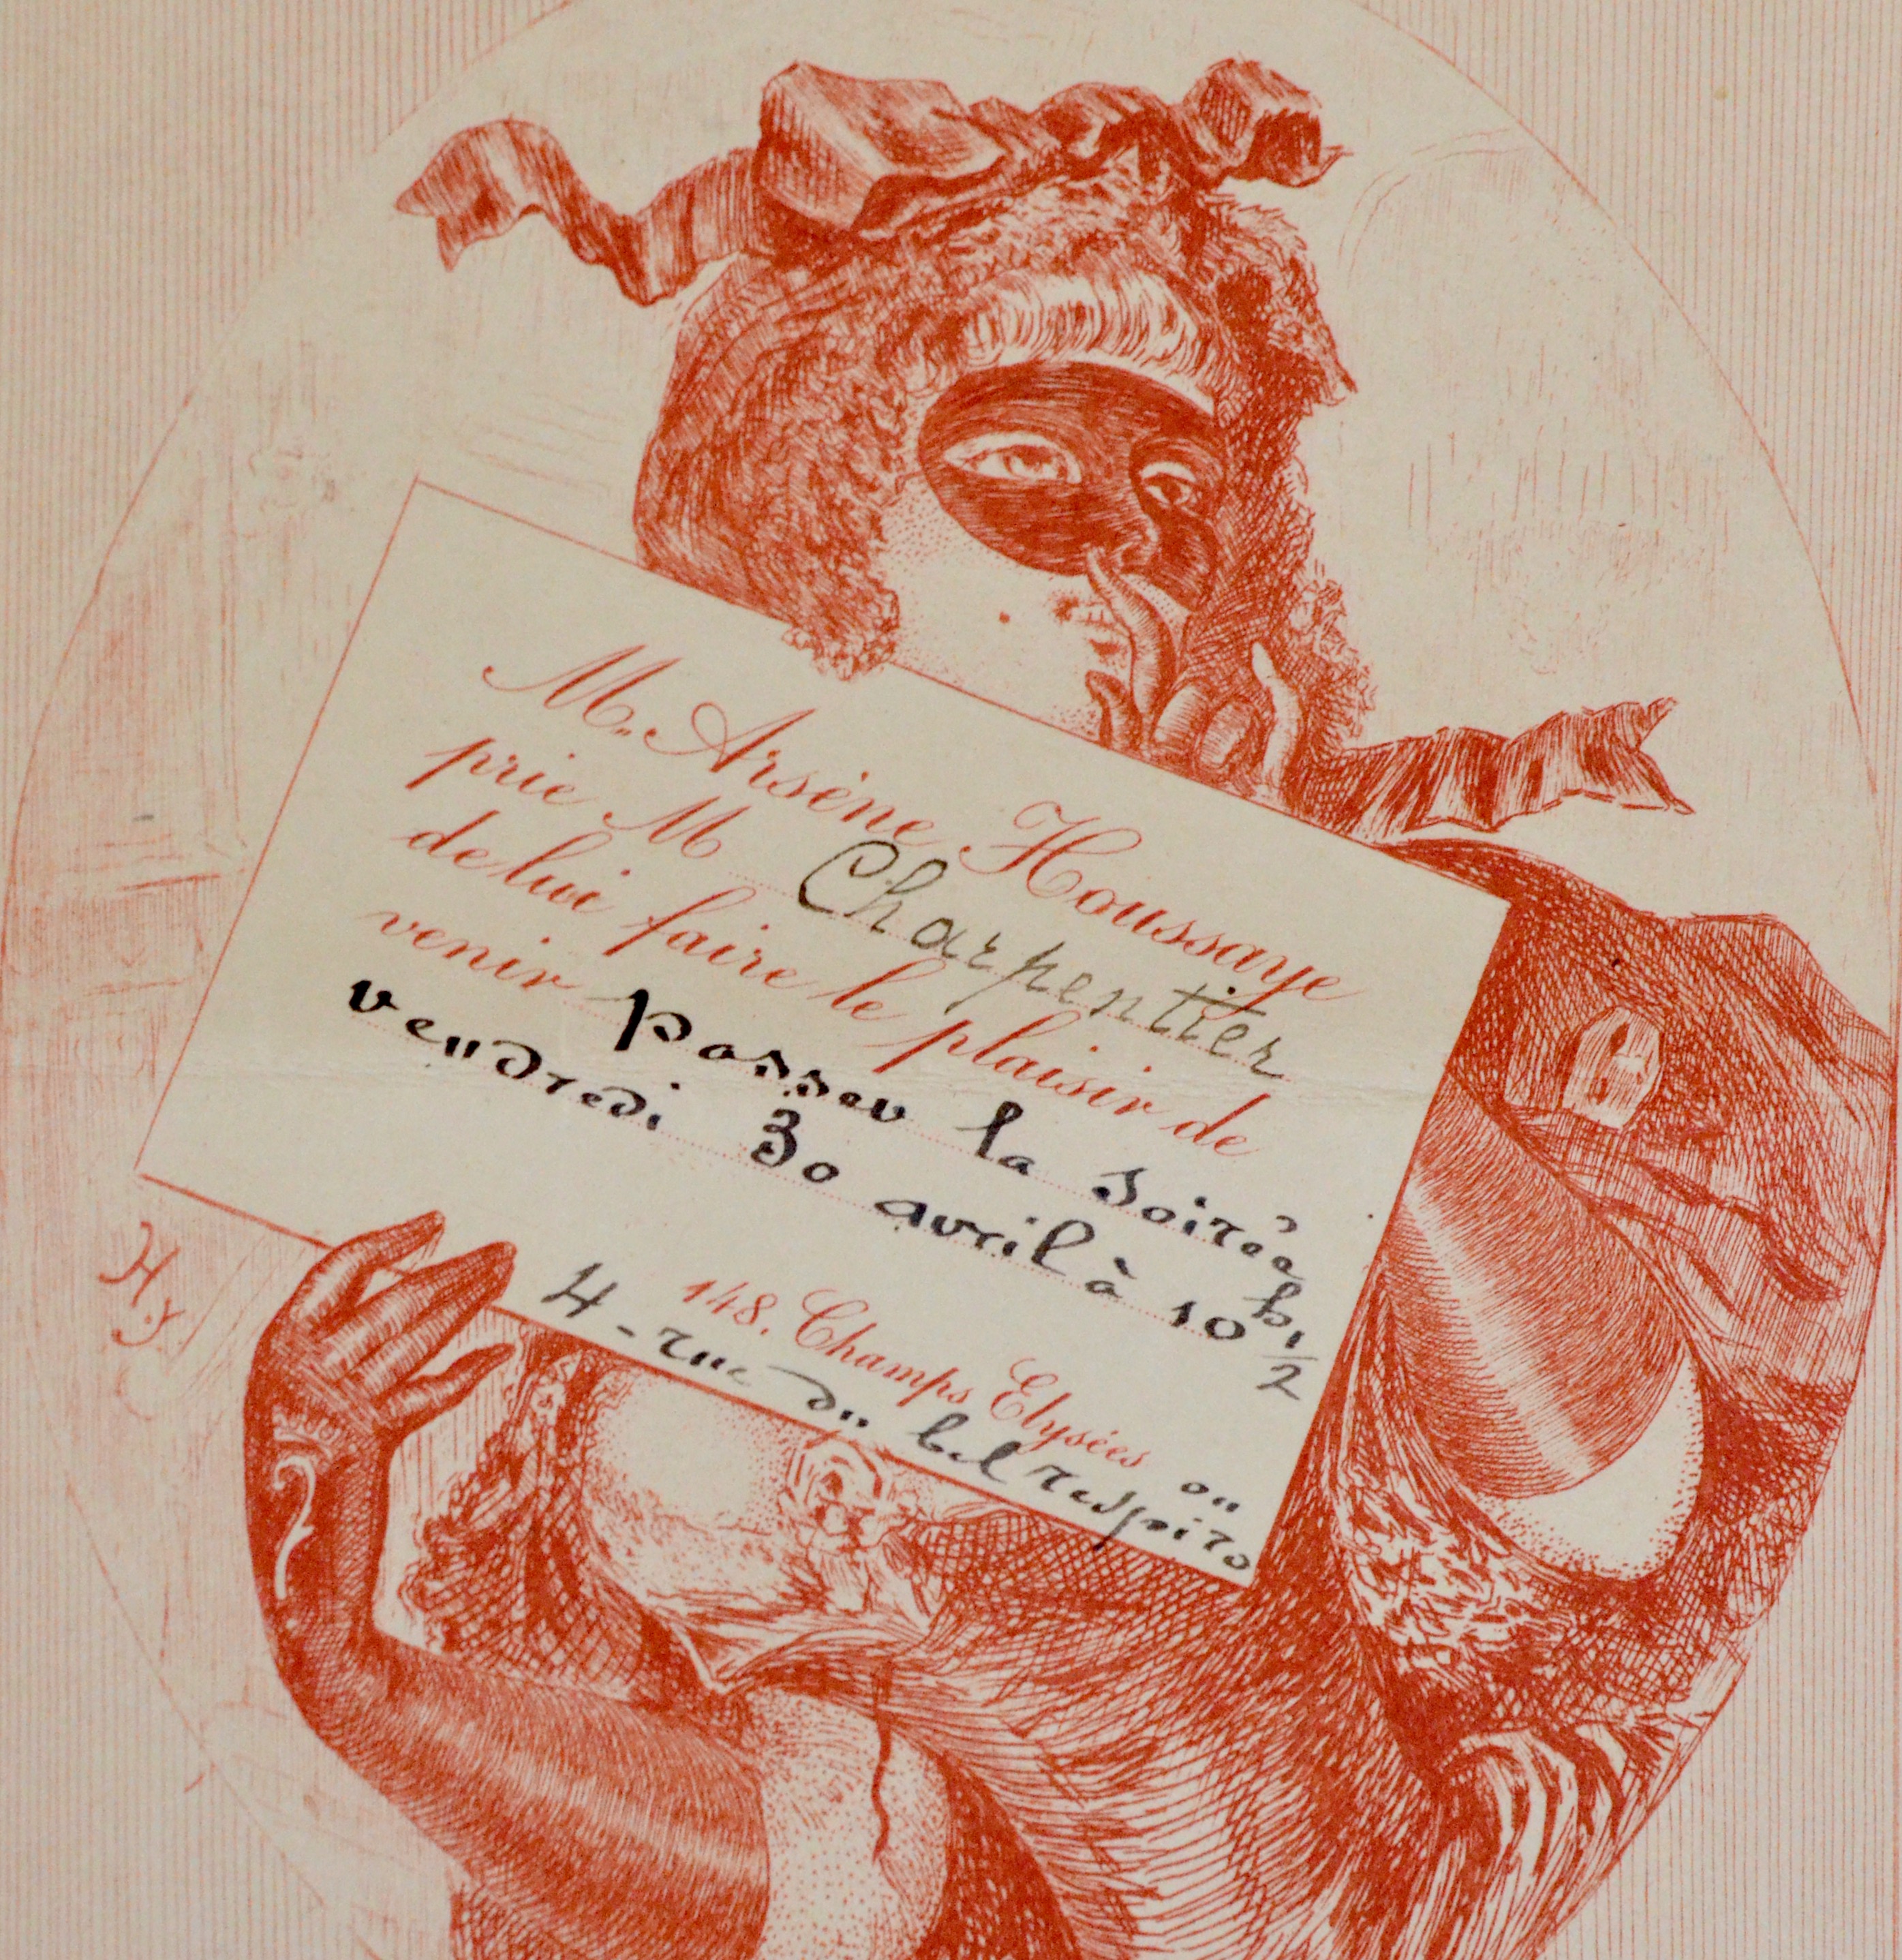 M. Arsène Houssaye
prie M Charpentier
de lui faire le plaisir de
venir passer la soirée
vendredi 30 avril à 10 h 1/2
148. Champs Elysées ou
4 - rue du bel respiro
H.y